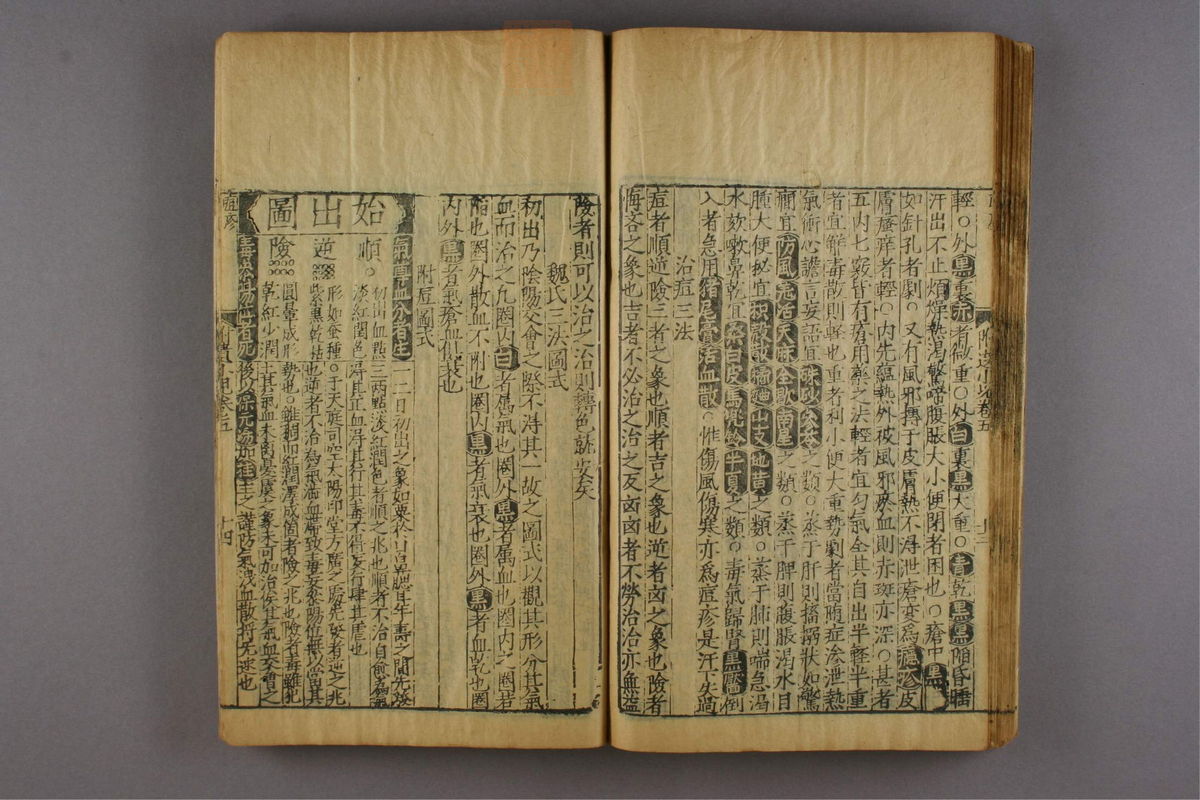 輕○外黑裏赤者微重○外白裏黑大重○青乾黑黶陷昏睡
汗出不止煩燥熱渴驚啼腹脹大小便閉者困也○瘡中黑
如針孔者劇○又有風邪搏于皮膚熱不得泄瘡變爲癮疹皮
膚瘙痒者輕○內先蘊熱外被風邪瘀血則赤斑亦深○甚者
五內七竅皆有瘡用藥之法輕者宜勻氣全其自出半輕半重
者宜觧毒散則觧也重者利小便大重勢劇者當随症滲泄熱
氣衝心譫言妄語宜硃砂參苓之類○蒸于肝則搐搦狀如驚
癎宜防風羌活天麻全歇南星之類○蒸于脾則腹脹渴水目
腫大便秘宜枳殻梔子地黃之類○蒸于肺則喘急渴
水欬嗽鼻乾宜桑白皮馬兠鈴半夏之類○毒氣歸腎黑黶倒
入者急用猪尾膏活血散○惟傷風傷寒亦爲痘疹是汗下失過
治痘三法
痘者順逆險三者之象也順者吉之象也逆者凶之象也險者
悔吝之象也吉者不必治之治之反凶凶者不勞治治亦無益
險者則可以治之治則轉色就安矣
魏氏三法圖式
初出乃陰陽交會之際不淂其一故之圖式以觀其形分其氣
血而治之凢圈內白者属氣也圈外黑者属血也圈內之圈若
陷也圈外散血不附也圈內黑者氣衰也圈外黑者血乾也圈
內外黑者氣瘡血俱衰也
附痘圖式
始出圖
氣尊血分者生
一二日初出之象如粟於口鼻腮耳年壽之間先發
順○
初出血㸃三兩㸃淡紅潤色者順之兆也順者不治自愈爲氣
淡紅潤色淂其正血淂其行其毒不得妄行肆其虐也
逆
形如蚕種○于天庭司空太陽印堂方廣之處先發者逆之兆
紫黑乾枯也逆者不治爲氣滯血凝致毒妄參陽位無以當其
險
圓暈成形勢也○雖稠而紅潤澤成箇者險之兆也險者毒雖犯
乾紅少潤上其氣血未离憂虞之象未可加治俟其氣血交會之
毒參陽位者死後以保元湯加桂主之謹防氣洩血散捋先速也
十四